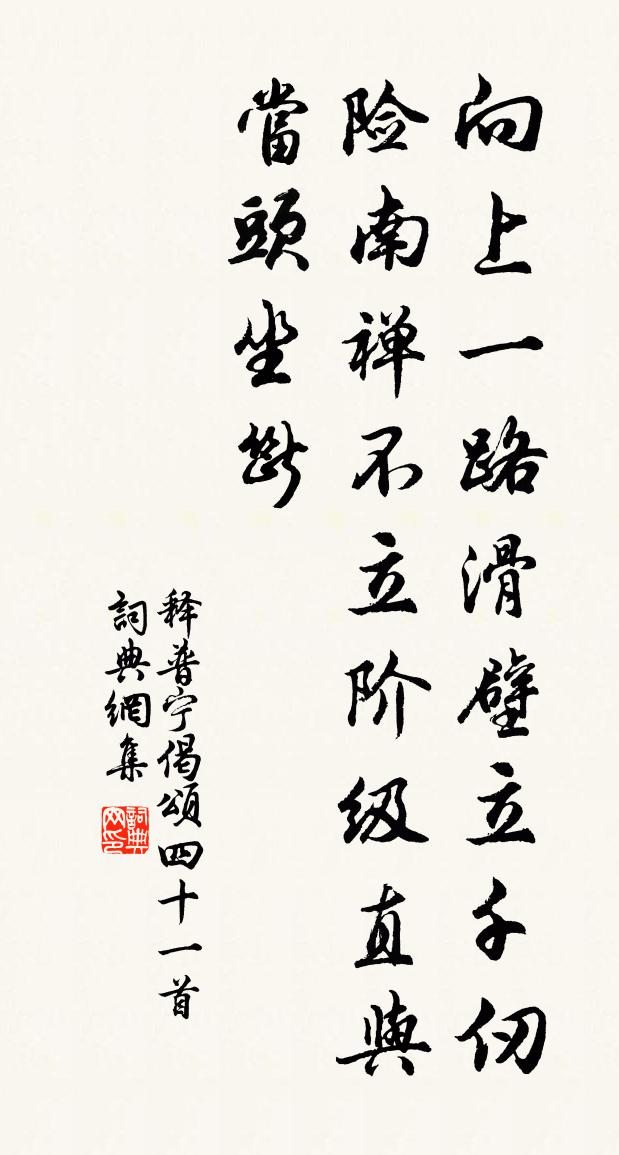 向上一路滑壁立千仞
险南禅不立阶级直與
當頭坐斷
释普宁偈頌四十一首
詞典網集
詞典网印